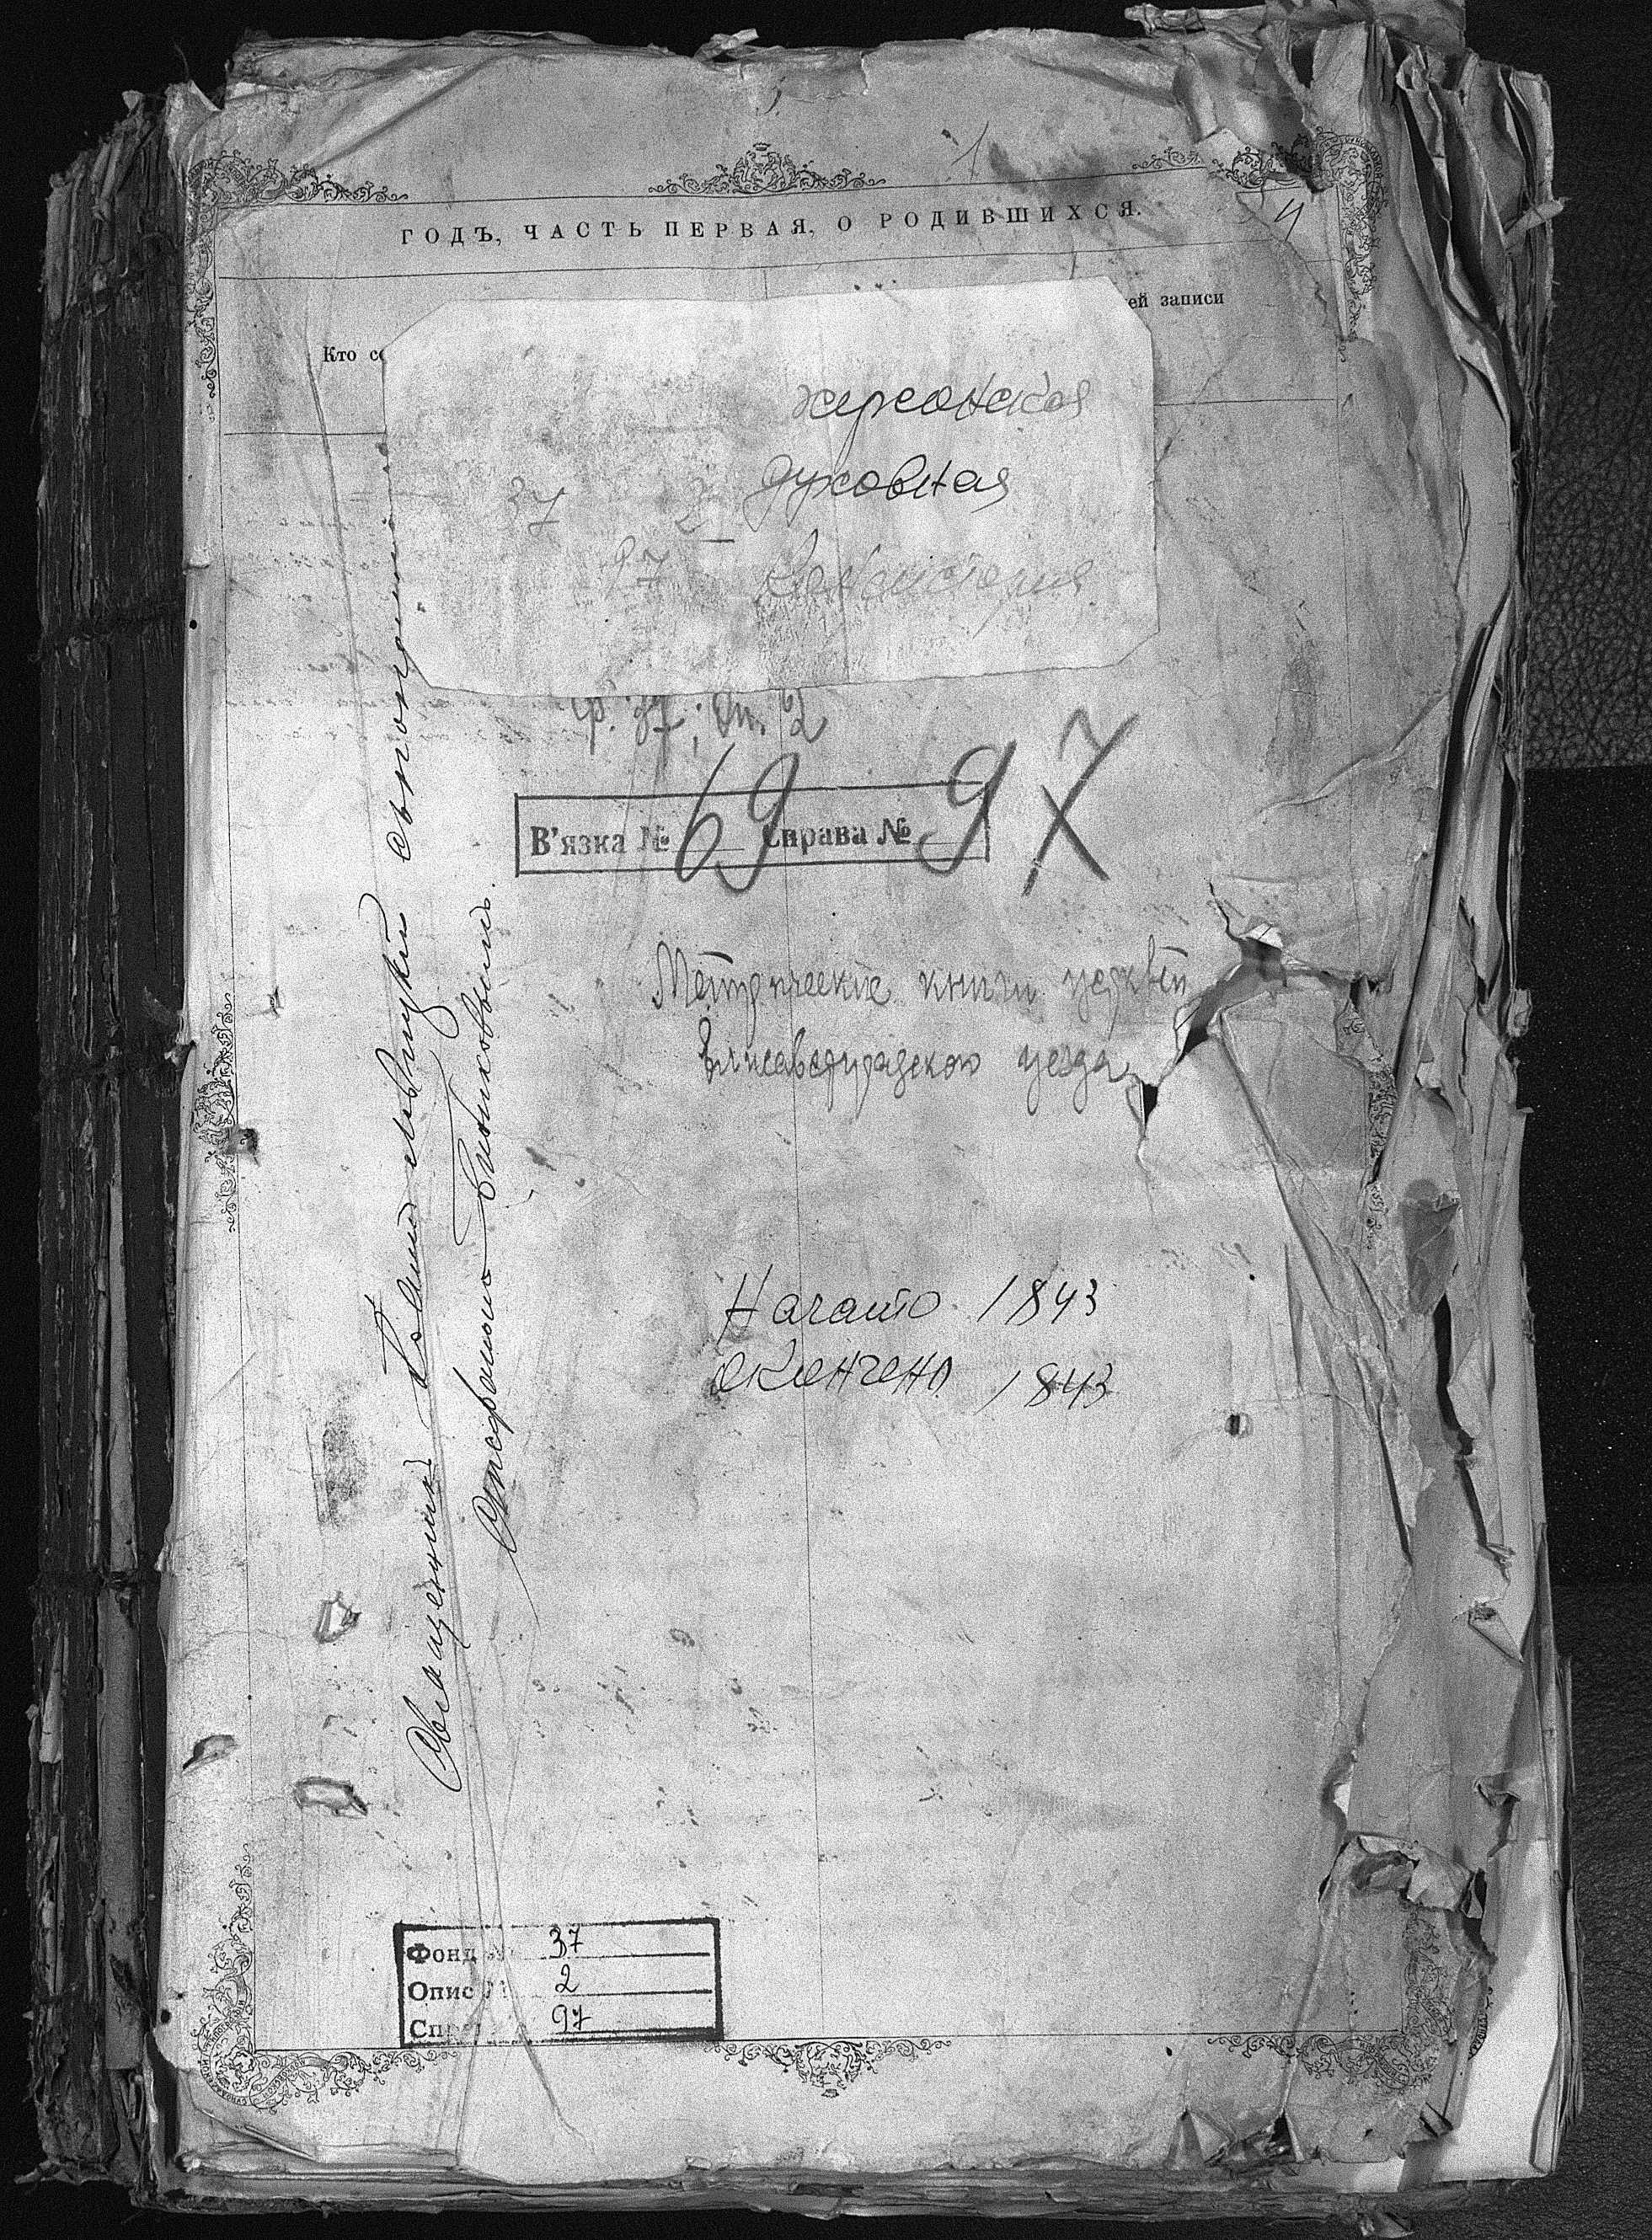 1
4
ГОДЪ, ЧАСТЬ ПЕРВАЯ, О РОДИВШИХСЯ.
ей записи
Кто со
херсонская
37 2 духовная
97 Консистория
ф. 37; Оп. 2
В’язка № 69 Справа № 97
Метрические книги церквей
Елисаветградского уезда
Начато 1843
окончено 1843
Священникъ
Фонд № 37
Опис № 2
Спр 97